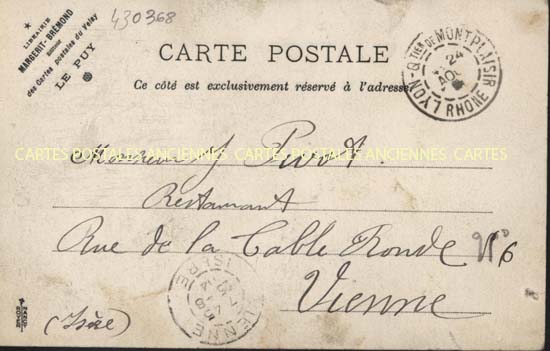 LIBRAIRIE
MARGERIT-BRÉMOND
des Cartes postales du Velay
LE PUY
430368
CARTE POSTALE
Ce côté est exclusivement réservé à l'adresse
LYON-QTIER DE MONTPLAISIR
24
AOU
RHONE
CARTES POSTALES ANCIENNES CARTES POSTALES ANCIENNES CARTES
Monsieur J Pivot
Restaurant
Rue de la Table Ronde
6
Vienne
VIENNE
ISERE
(Isère)